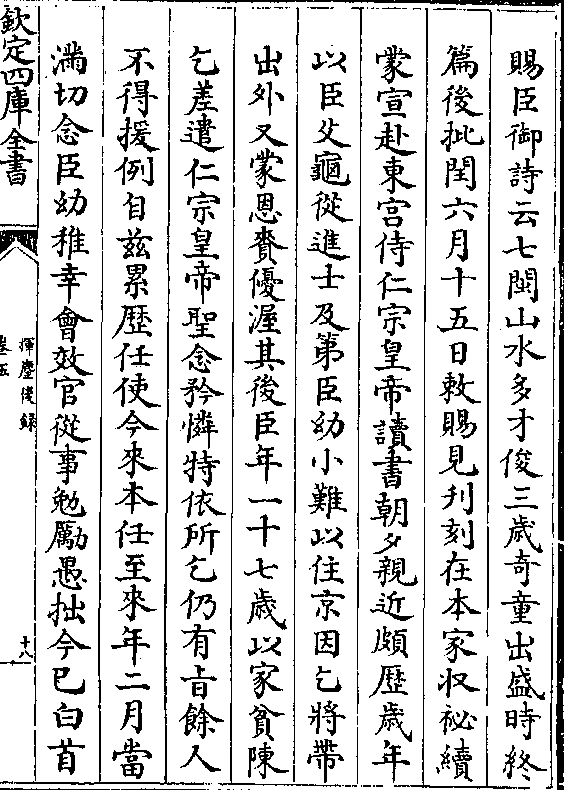 賜臣御詩云七閩山水多才俊三歲奇童出盛時終
篇後批閏六月十五日敕賜見刋刻在本家收祕續
䝉宣赴東宮侍仁宗皇帝讀書朝夕親近頗歴歲年
以臣父龜從進士及第臣幼小難以住京因乞將帶
出外又䝉恩賚優渥其後臣年一十七歲以家貧陳
乞差遣仁宗皇帝聖念矜憐特依所乞仍有旨餘人
不得援例自兹累歴任使今來本任至來年二月當
滿切念臣幼稚幸會效官從事勉勵愚拙今已白首
欽定四庫全書
揮麈後録
卷五
十八